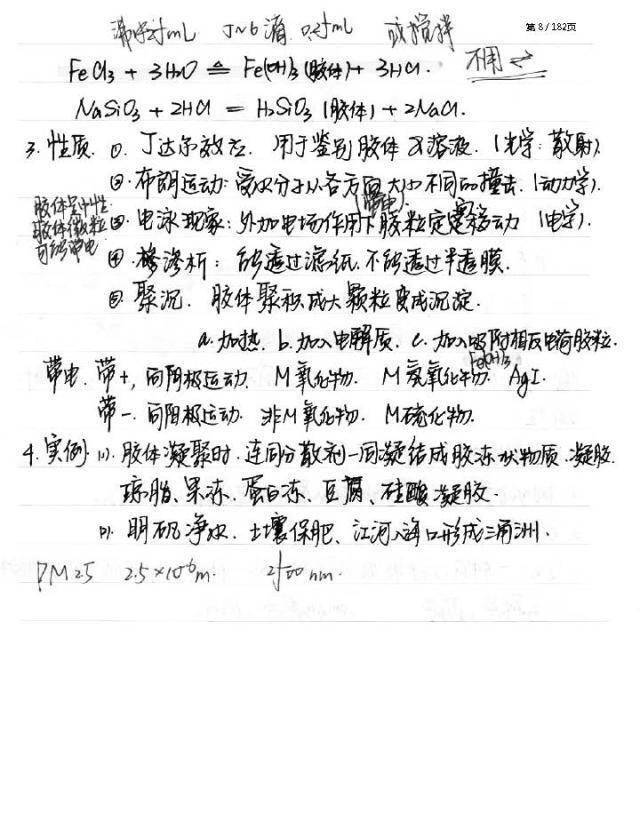 第 8 / 182页
沸水25mL 5~6滴 0.25mL 或搅拌
FeCl₃ + 3H₂O ≜ Fe(OH)₃(胶体) + 3HCl. 不用 ⇌
NaSiO₃ + 2HCl = H₂SiO₃ (胶体) + 2NaCl.
3. 性质. ①. 丁达尔效应. 用于鉴别胶体及溶液. (光学: 散射).
②. 布朗运动: 受水分子从各方面大小不同的撞击. (动力学).
胶体呈中性
胶体微粒
可能带电
③. 电泳现象: 外加电场作用下胶粒(带电)定向移动 (电学).
④. 渗析: 能透过滤纸. 不能透过半透膜.
⑤. 聚沉. 胶体聚积成大颗粒变成沉淀.
a. 加热. b. 加入电解质. c. 加入吸附相反电荷胶粒.
带电. 带+, 向阴极运动. M氧化物. M氢氧化物. Fe(OH)₃ AgI.
带-. 向阳极运动. 非M氧化物. M硫化物.
4. 实例. (1). 胶体凝聚时. 连同分散剂一同凝结成胶冻状物质. 凝胶.
琼脂、果冻、蛋白冻、豆腐、硅酸凝胶.
(2). 明矾净水. 土壤保肥、江河入海口形成三角洲.
PM2.5 2.5×10⁻⁶m. 2500 nm.